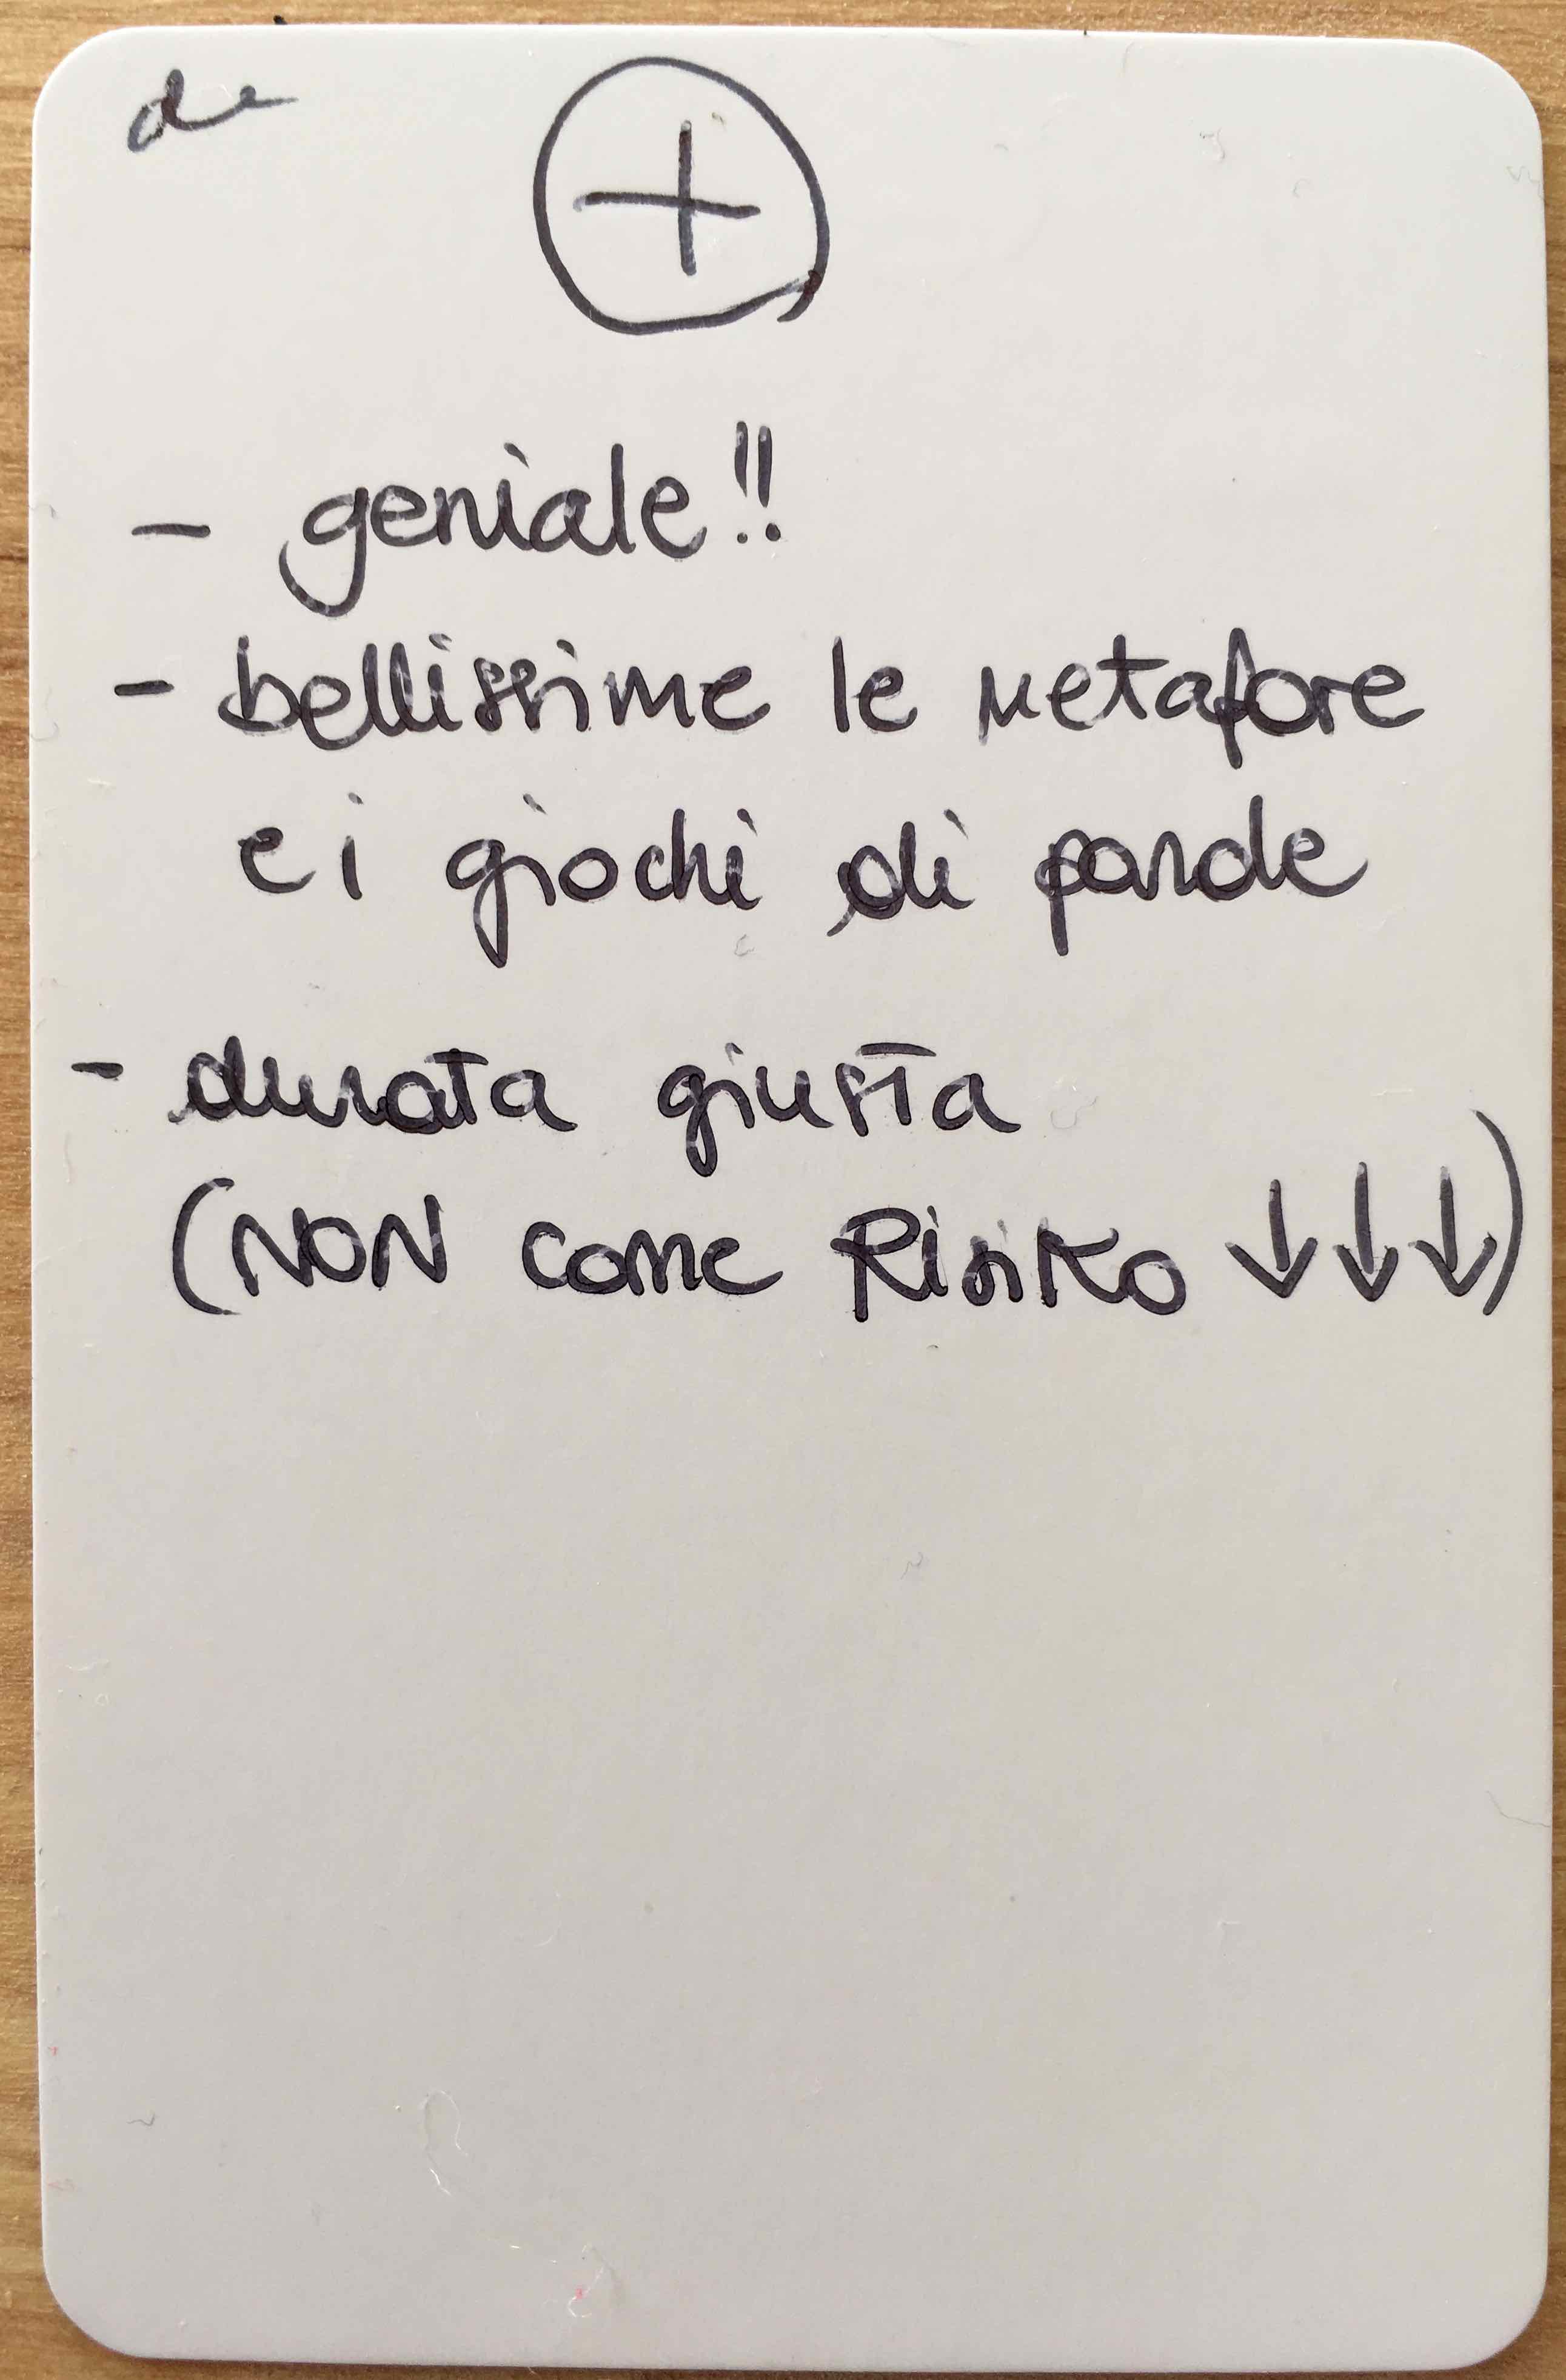 de
+
- geniale!!
- bellissime le metafore
e i giochi di parole
- durata giusta
(NON come Risiko ↓↓↓)